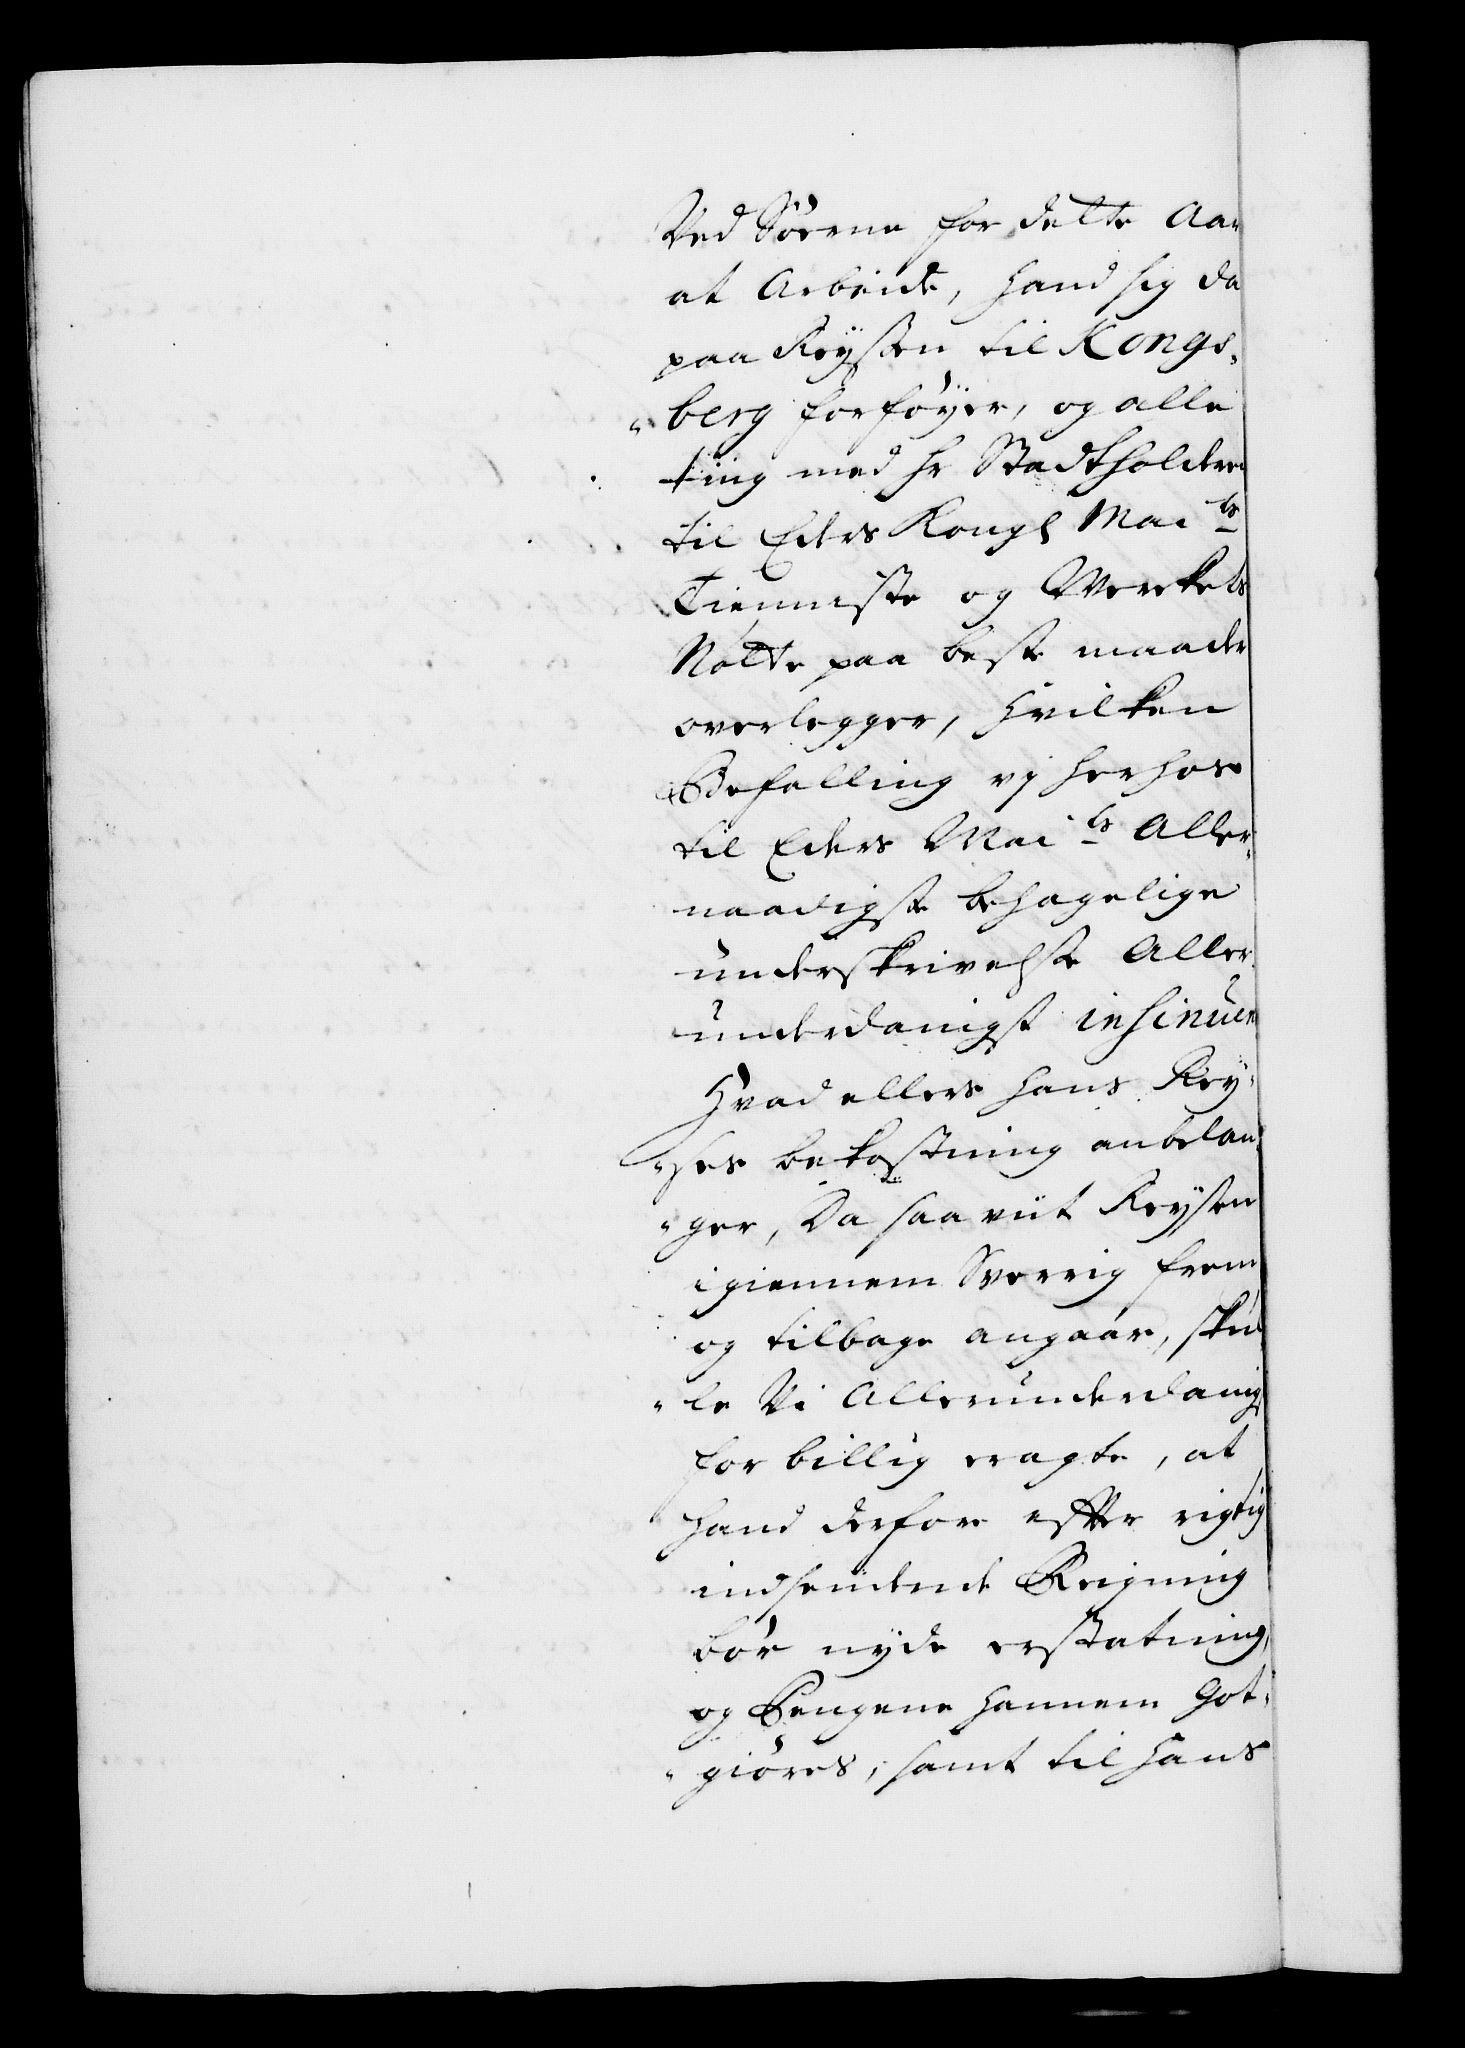 Ved Søerne for dette Aar
at Arbeide, hand sig da
paa Reysen til Kongs-
berg forføyer, og alle
ting med Hr Stadtholderen
til Eders Kongl Mai ts
Tienneste og Werkets
Nøtte paa beste maader
overlegger, Hvilken
Befalling vj herhos
til Eders Mai ts Aller-
naadigste behagelige
underskrivelse Aller-
underdanigst insinuer
Hvad ellers hans Rey-
ses bekostning anbelan-
ger, Da saa viit Reysen
igiennem Sverrig frem
og tilbage angaar, skul-
le Vi Allerunderdanigst
for billig eragte, at
hand derfore efter rigtig
indsendende Reigning
bør nyde erstatning,
og Pengene hannem Got-
giøres, samt til hans